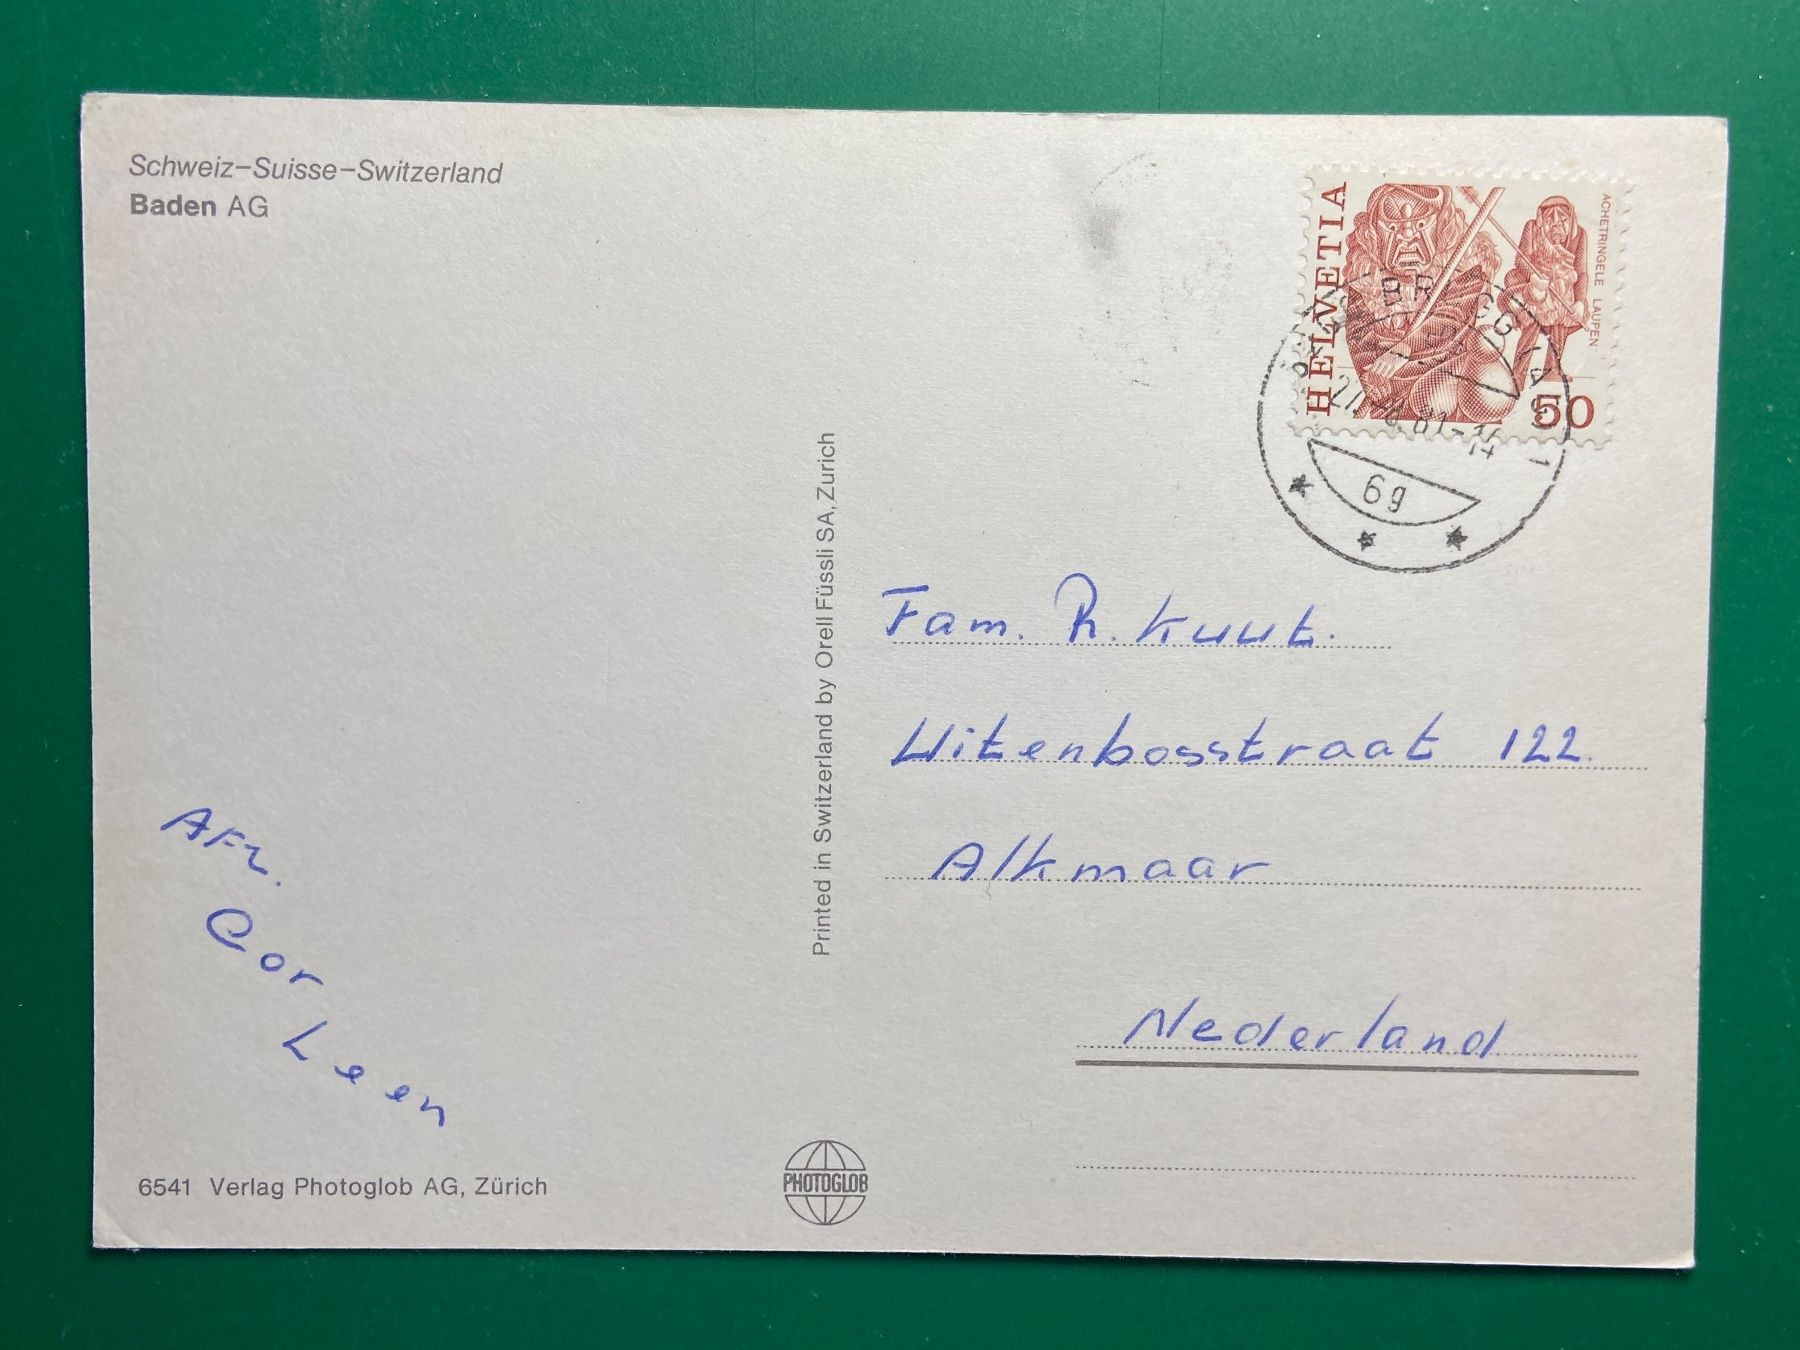 Schweiz–Suisse–Switzerland
Baden AG
HELVETIA
ACHETRINGELE LAUPEN
50
6g
1
Printed in Switzerland by Orell Füssli SA, Zurich
Fam. R. Kuut.
Uitenbosstraat 122.
Alkmaar
Nederland
Afz.
Cor
Leen
6541 Verlag Photoglob AG, Zürich
PHOTOGLOB